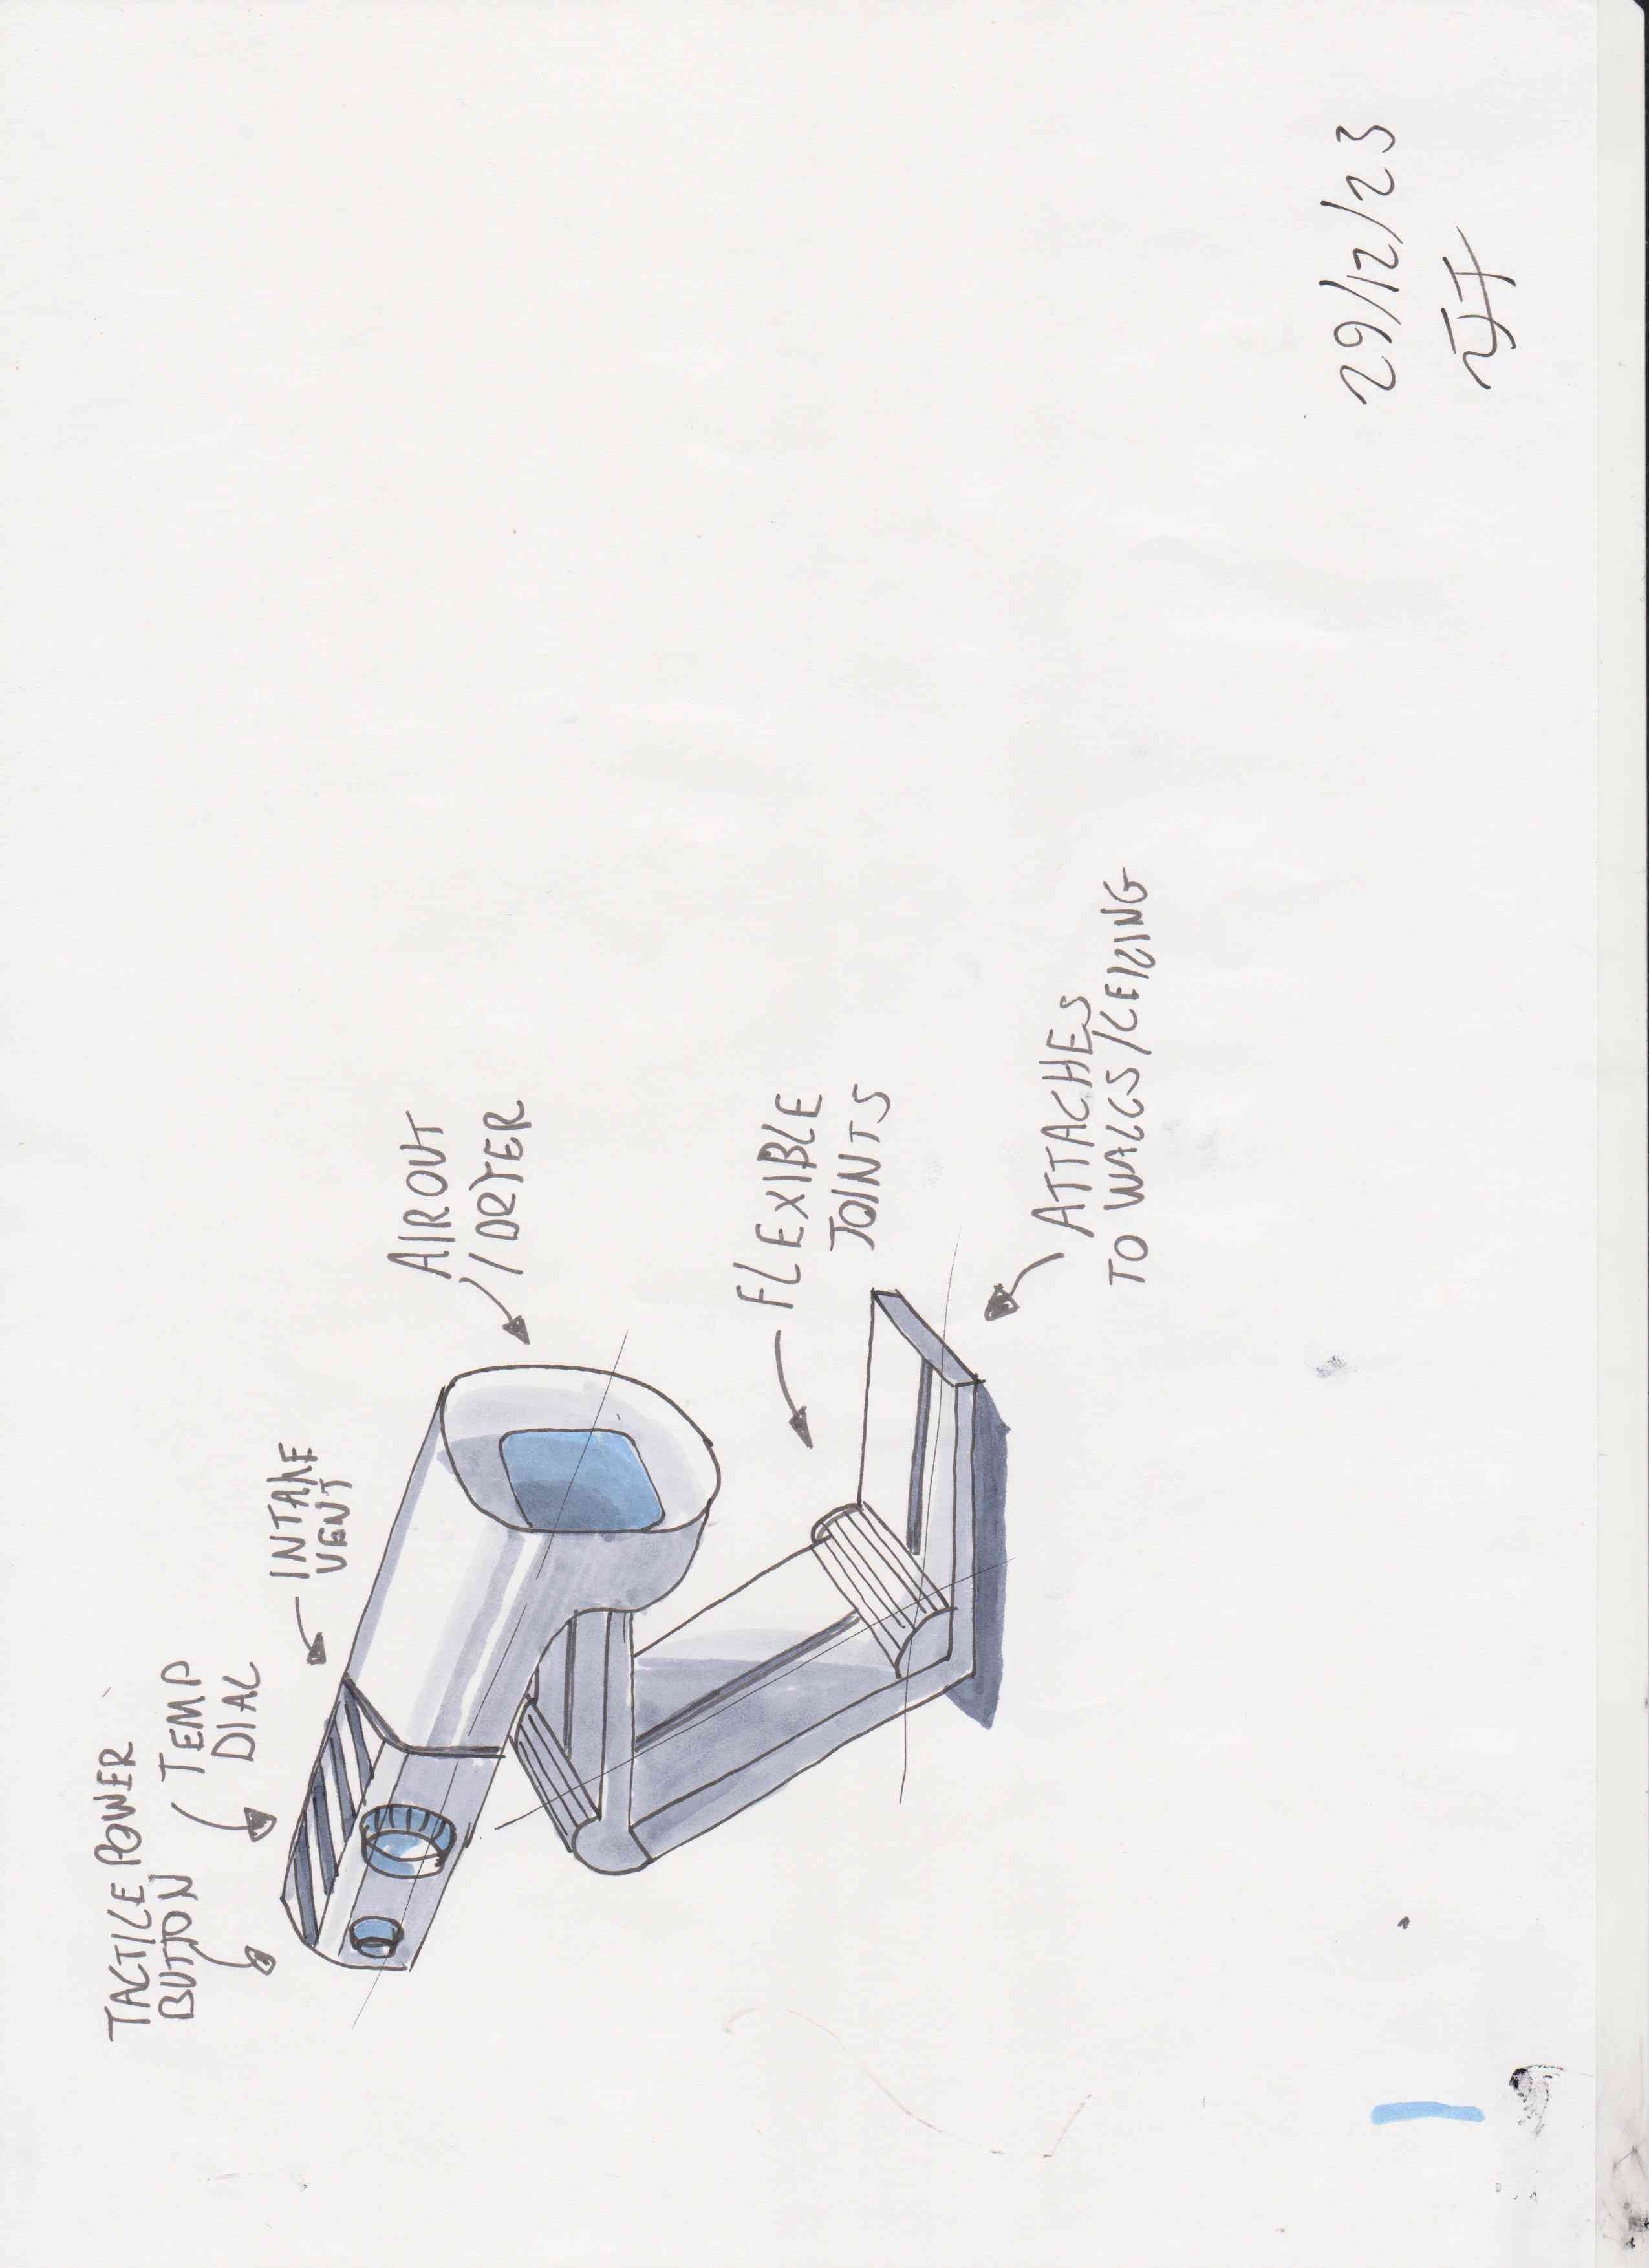 TACTILE POWER
BUTTON
TEMP
DIAL
INTAKE
VENT
AIROUT
/DRYER
FLEXIBLE
JOINTS
ATTACHES
TO WALLS/CEILING
29/12/23